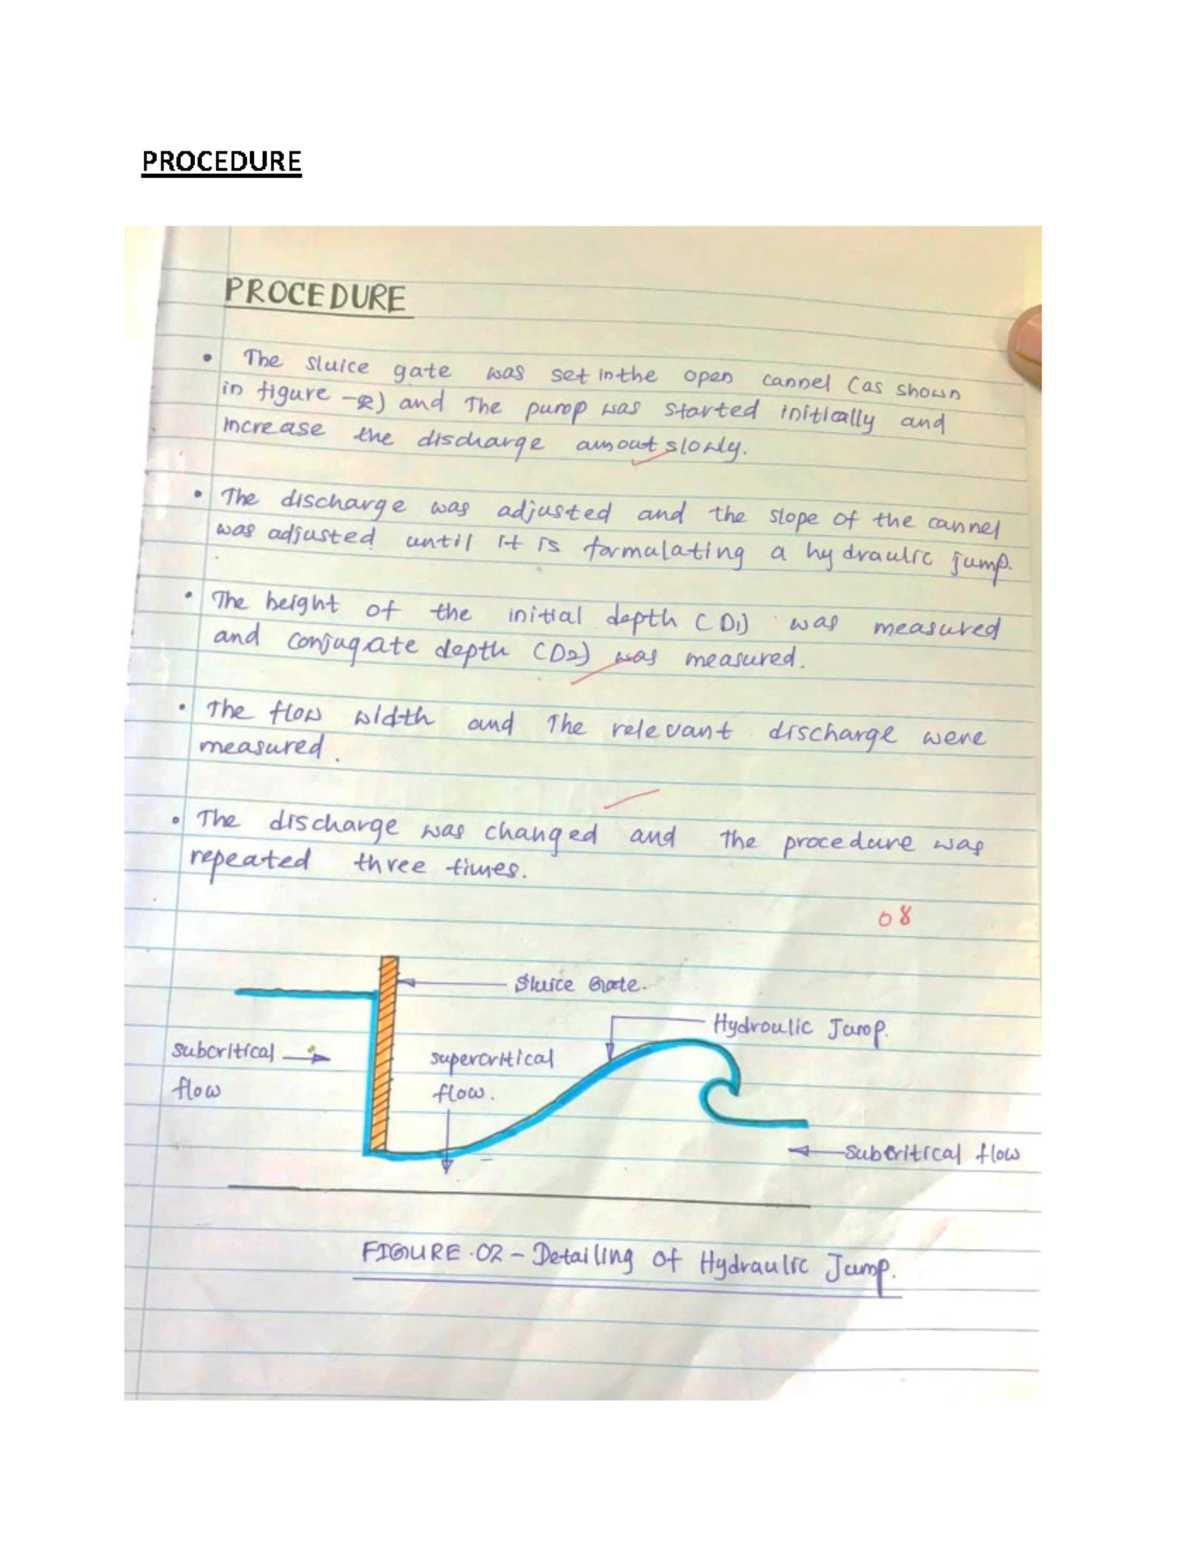 PROCEDURE
PROCEDURE
• The sluice gate was set in the open cannel (as shown
in figure -2) and The pump was started initically and
increase the discharge amout slowly.
• The discharge was adjusted and the slope of the cannel
was adjusted until it is formulating a hydraulic jump.
• The height of the initial depth (D1) was measured
and conjugate depth (D2) was measured.
• The flow width and The relevant discharge were
measured.
• The discharge was changed and the procedure was
repeated three times.
08
Sluice Gate.
Hydroulic Jump.
subcritical
flow
supercritical
flow.
Subcritical flow
FIGURE.02 - Detailing of Hydraulic Jump.